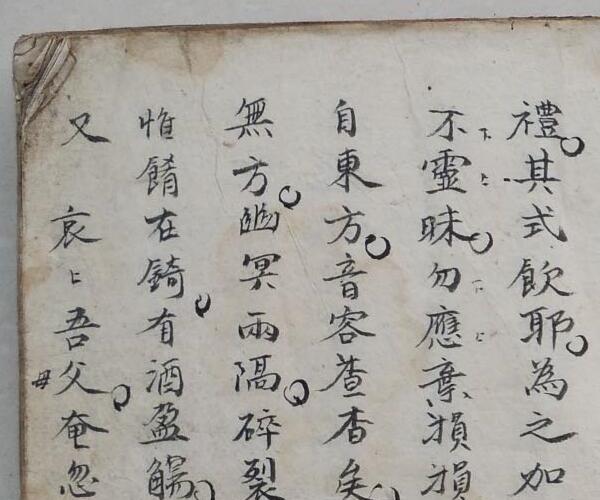 禮其式飲耶為之加
不靈昧勿應棄損損
自東方音容蒼杳矣
無方幽冥兩隔碎裂
惟餚在錡有酒盈觴
又 哀〻吾父奄忽
母